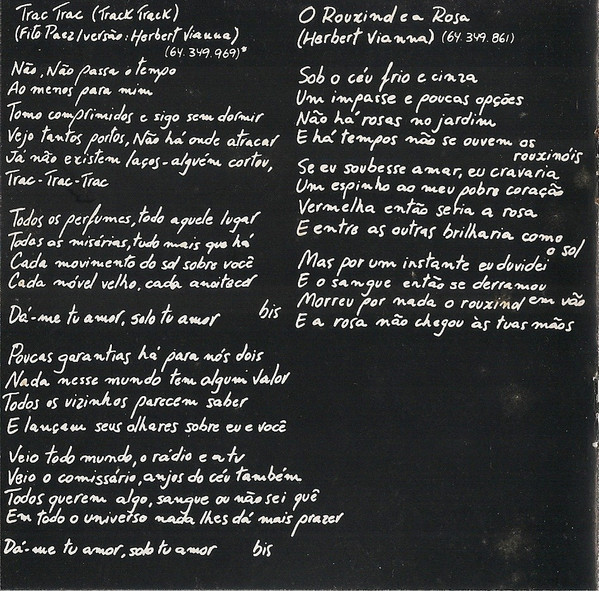 Trac Trac (Track Track)
(Fito Paez/versão: Herbert Vianna)
(64.349.969)*
Não, Não passa o tempo
Ao menos para mim
Tomo comprimidos e sigo sem dormir
Vejo tantos portos, Não há onde atracar
Já não existem laços-alguém cortou,
Trac-Trac-Trac
Todos os perfumes, todo aquele lugar
Todas as misérias, tudo mais que há
Cada movimento do sol sobre você
Cada móvel velho, cada anoitecer
Dá-me tu amor, solo tu amor bis
Poucas garantias há para nós dois
Nada nesse mundo tem algum valor
Todos os vizinhos parecem saber
E lançam seus olhares sobre eu e você
Veio todo mundo, o rádio e a tv
Veio o comissário, anjos do céu também
Todos querem algo, sangue ou não sei quê
Em todo o universo nada lhes dá mais prazer
Dá-me tu amor, solo tu amor bis
O Rouxinol e a Rosa
(Herbert Vianna) (64.349.861)
Sob o céu frio e cinza
Um impasse e poucas opções
Não há rosas no jardim
E há tempos não se ouvem os
rouxinóis
Se eu soubesse amar, eu cravaria
Um espinho ao meu pobre coração
Vermelha então seria a rosa
E entre as outras brilharia como
o sol
Mas por um instante eu duvidei
E o sangue então se derramou
Morreu por nada o rouxinol em vão
E a rosa não chegou às tuas mãos